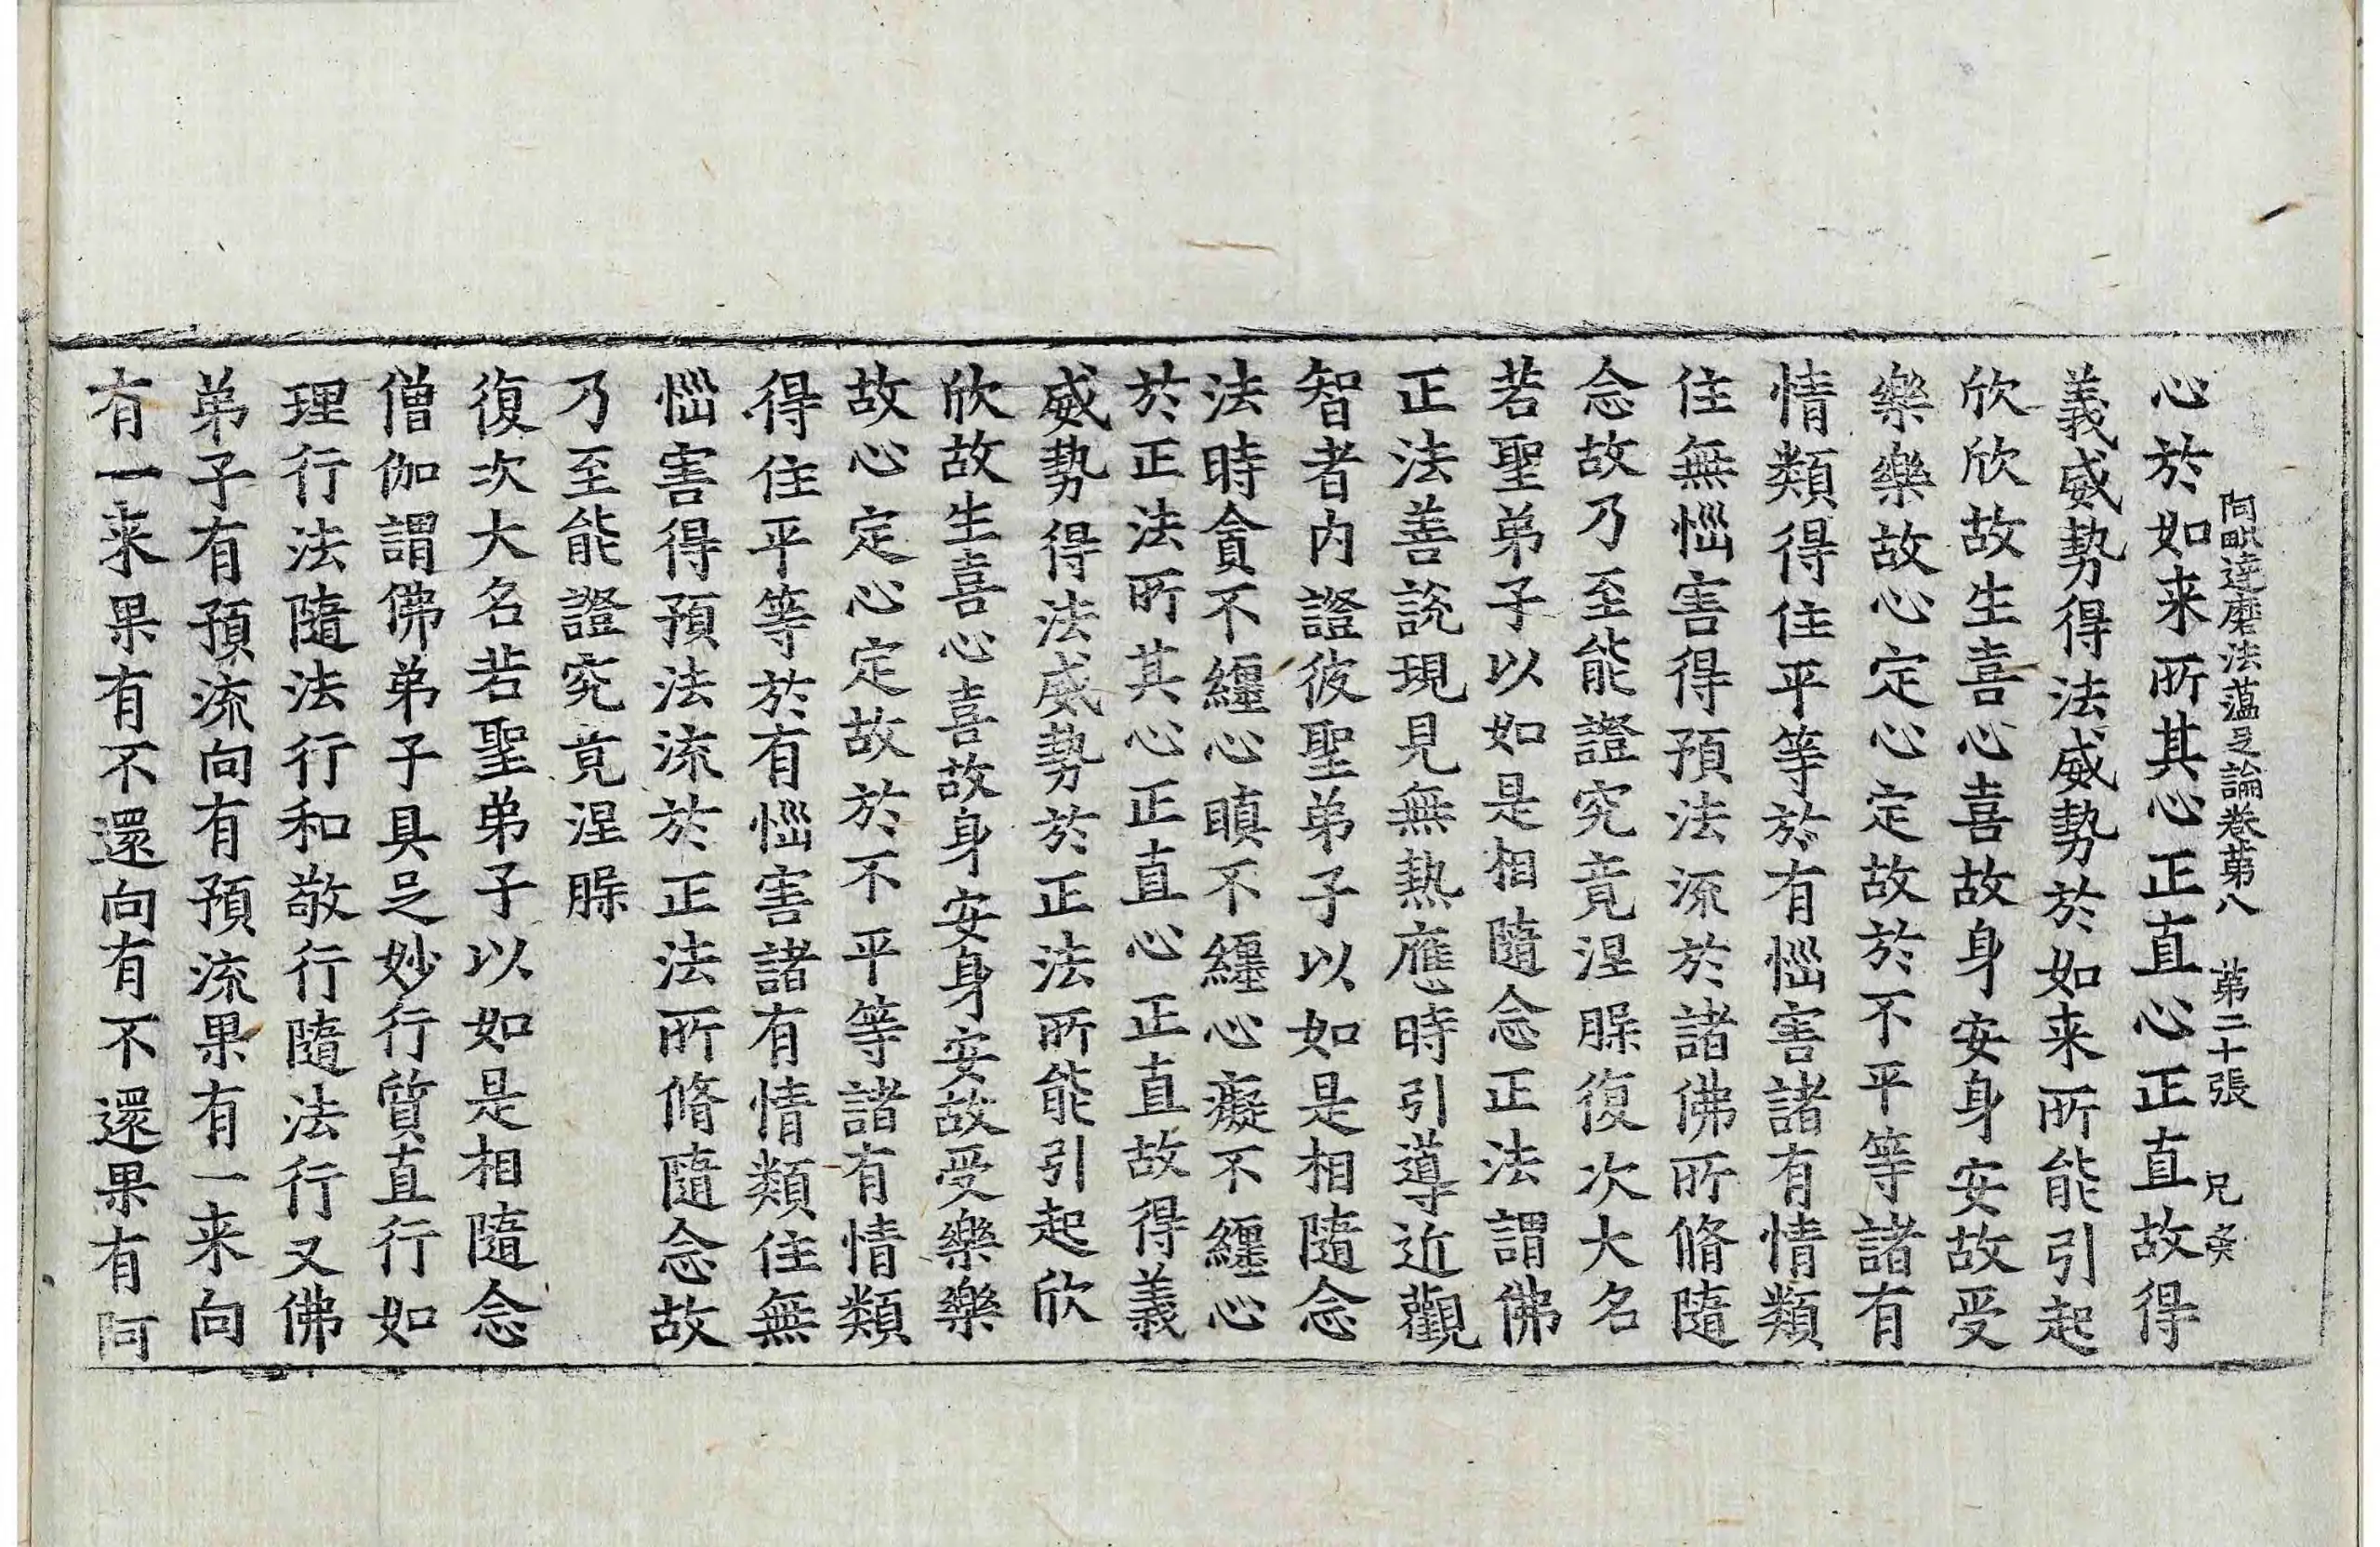 阿毗達磨法蕴足論卷第八　第二十張　兄
心於如来所其心正直心正直故得
義威勢得法威勢於如来所能引起
欣欣故生喜心喜故身安身安故受
樂樂故心定心定故於不平等諸有
情類得住平等於有惱害諸有情類
住無惱害得預法流於諸佛所脩隨
念故乃至能證究竟涅槃復次大名
若聖弟子以如是相隨念正法謂佛
正法善說現見無熱應時引導近觀
智者内證彼聖弟子以如是相隨念
法時貪不纏心瞋不纏心癡不纏心
於正法所其心正直心正直故得義
威勢得法威勢於正法所能引起欣
欣故生喜心喜故身安身安故受樂樂
故心定心定故於不平等諸有情類
得住平等於有惱害諸有情類住無
惱害得預法流於正法所脩隨念故
乃至能證究竟涅槃
復次大名若聖弟子以如是相隨念
僧伽謂佛弟子具足妙行質直行如
理行法隨法行和敬行隨法行又佛
弟子有預流向有預流果有一来向
有一来果有不還向有不還果有阿